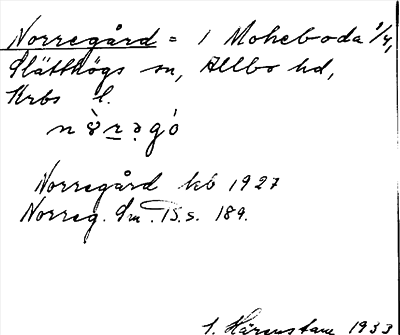 Norregård = 1 Moheboda 1/4,
Slätthögs sn, Allbo hd,
Krbs l.
Norregård kb 1927
Norreg. Sm. Ts. s. 189.
S. Härenstam 1933